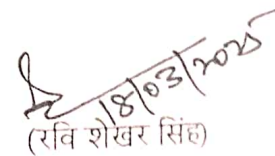 18/03/2025
(रवि शेखर सिंह)